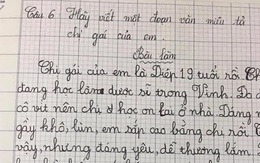 Câu 6 Hãy viết một đoạn văn miêu tả
chị gái của em.
Bài làm
Chị gái của em là Diệp 19 tuổi rồi. Ch
đang học làm dược sĩ trong Vinh. Do d
cô vít nên chị học on lai ở nhà. Dáng n
gầy khô, lùn, em sắp cao bằng chị rồi. T
vậy, nhưng đáng yêu, dễ thương lắm.